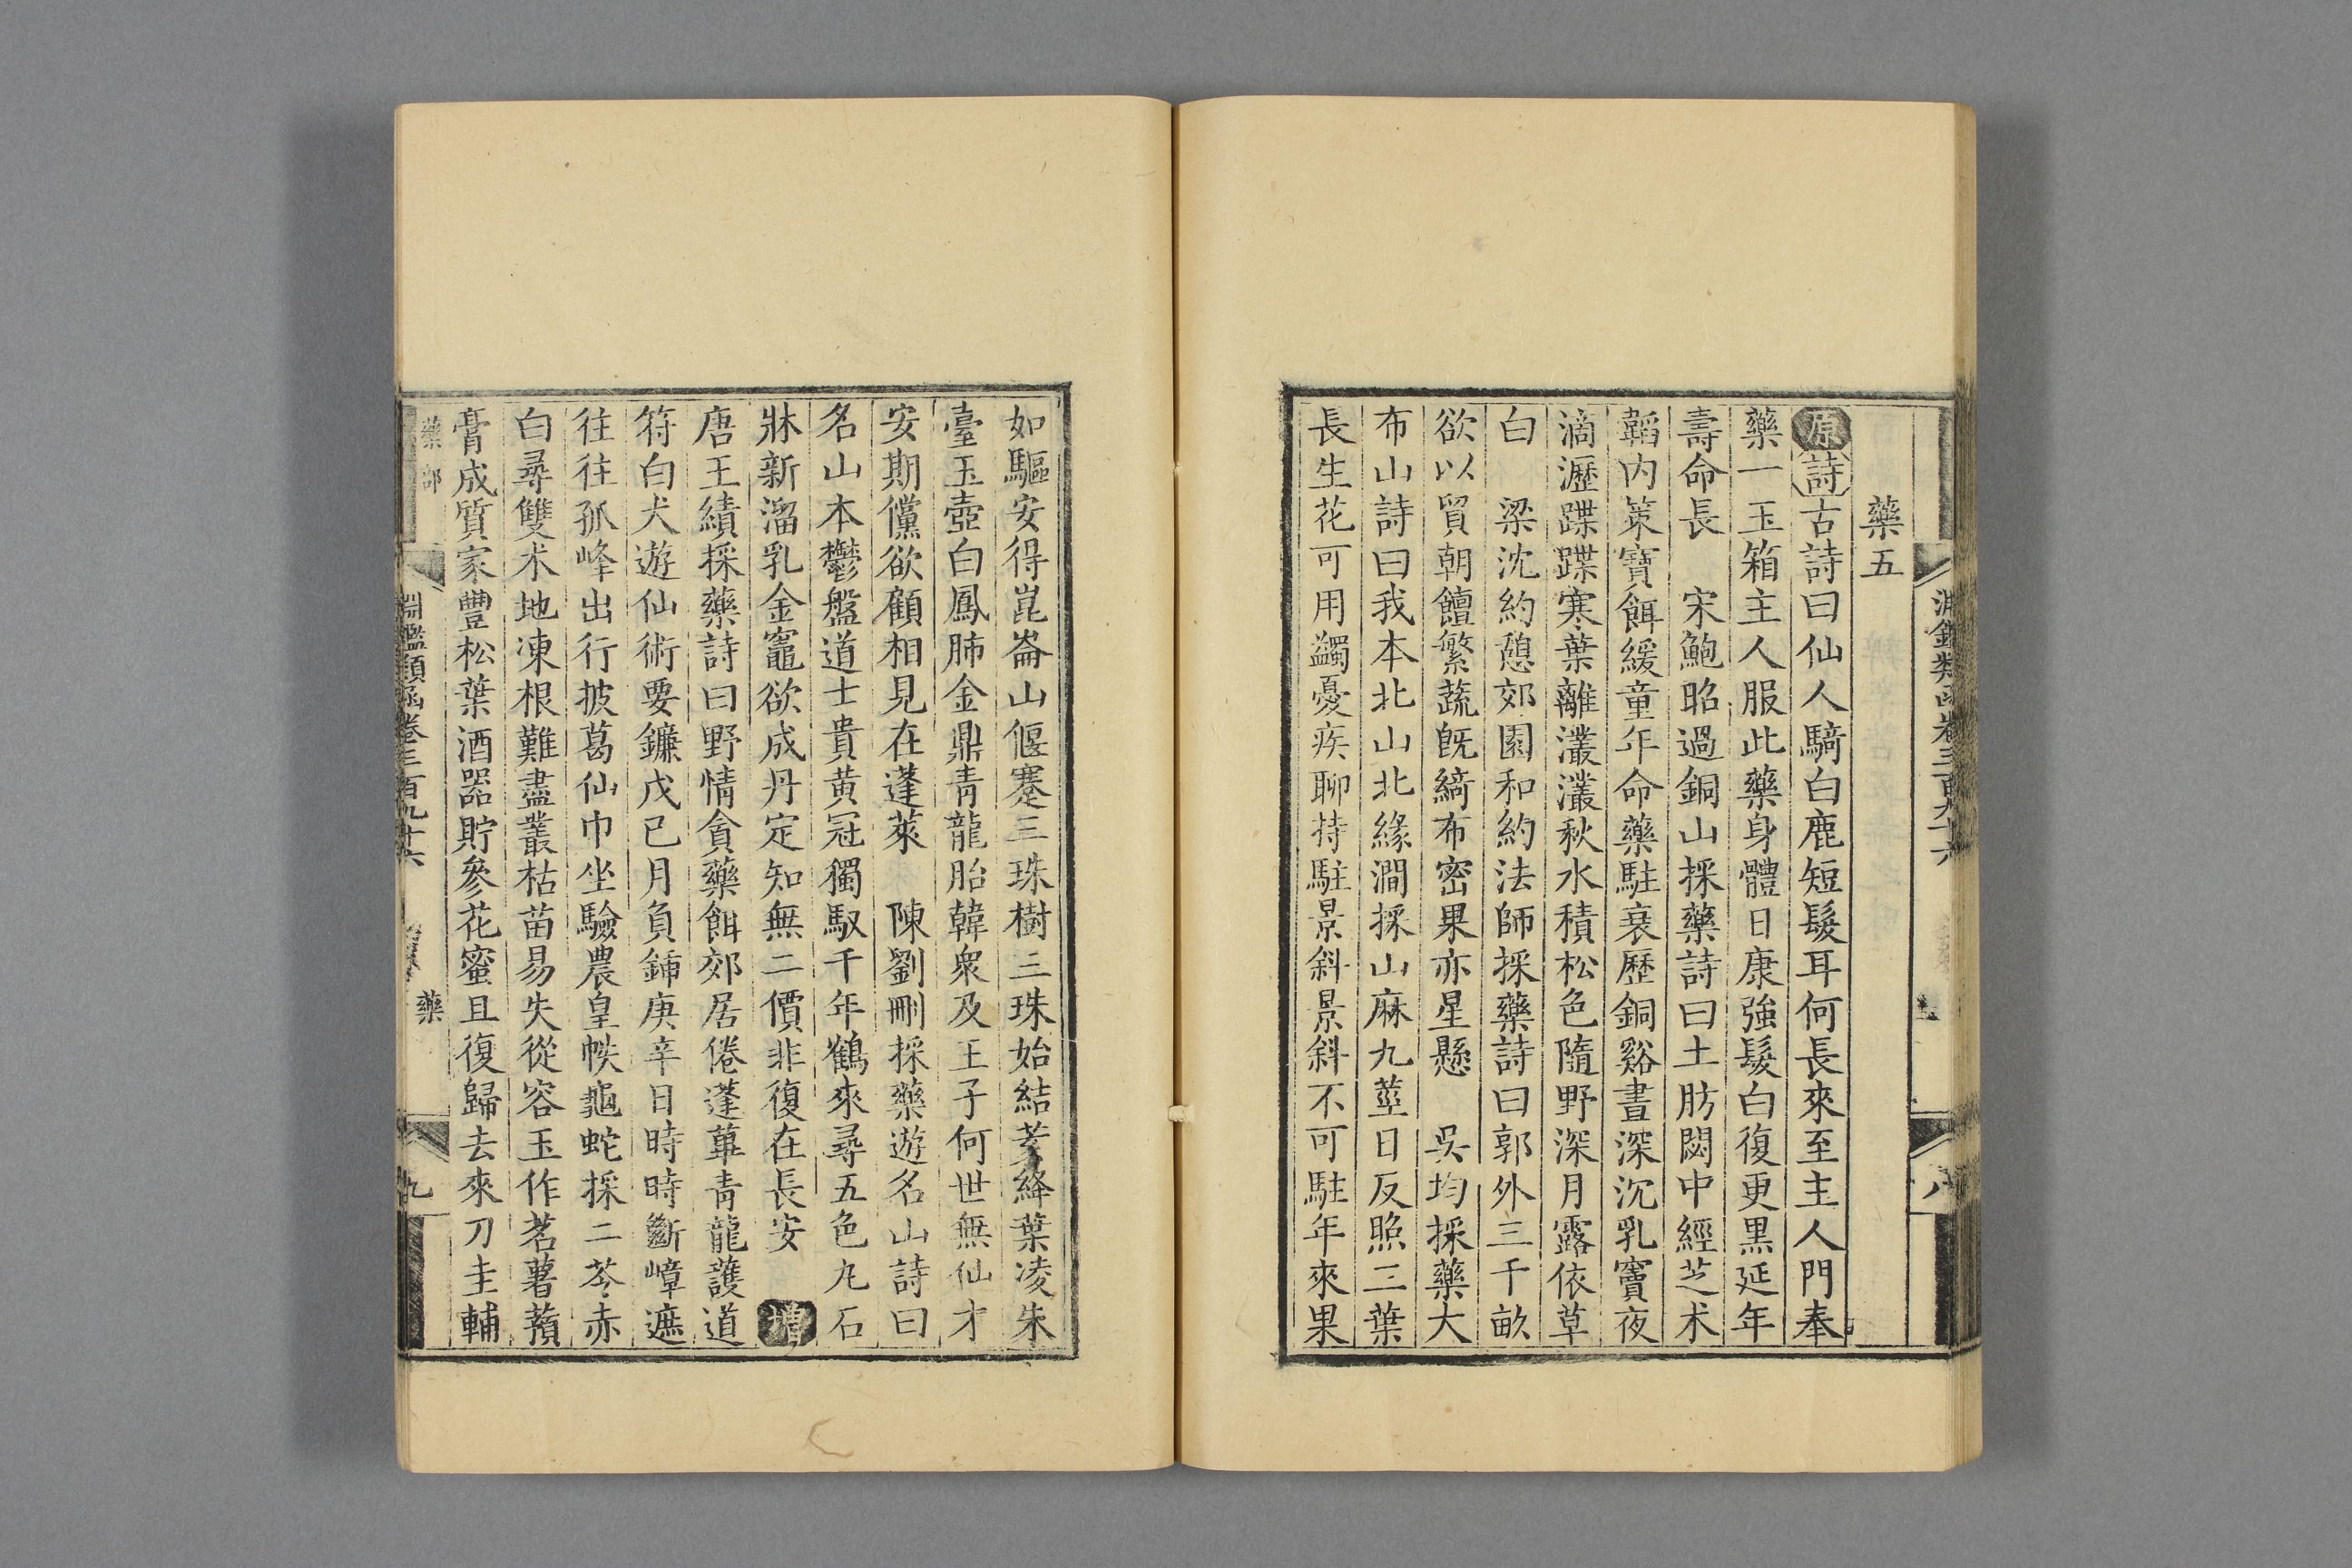 藥五
原詩古詩曰仙人騎白鹿短髮耳何長來至主人門奉
藥一玉箱主人服此藥身體日康強髮白復更黑延年
壽命長　宋鮑昭過銅山採藥詩曰土肪閟中經芝术
韜內策寶餌緩童年命藥駐衰歷銅谿晝深沉乳竇夜
滴瀝蹀蹀寒葉離灇灇秋水積松色隨野深月露依草
白　梁沈約憩郊園和約法師採藥詩曰郭外三千畝
欲以貿朝饘繁蔬既綺布密果亦星懸　吳均採藥大
布山詩曰我本北山北緣澗採山麻九莖日反照三葉
長生花可用蠲憂疾聊持駐景斜景斜不可駐年來果
如驅安得崑崙山偃蹇三珠樹三珠始結荄絳葉凌朱
臺玉壺白鳳肺金鼎青龍胎韓衆及王子何世無仙才
安期儻欲顧相見在蓬萊　陳劉刪採藥遊名山詩曰
名山本鬱盤道士貴黄冠獨馭千年鶴來尋五色丸石
牀新溜乳金竈欲成丹定知無二價非復在長安　增
唐王績採藥詩曰野情貪藥餌郊居倦蓬蓽青龍護道
符白犬遊仙術要鐮戊已月負鍤庚辛日時時斷嶂遮
往往孤峰出行披葛仙巾坐驗農皇帙龜蛇採二苓赤
白尋雙术地凍根難盡叢枯苗易失從容玉作茗薯蕷
膏成質家豐松葉酒器貯參花蜜且復歸去來刀圭輔
藥部
淵鑑類函卷三百九十六
藥
九